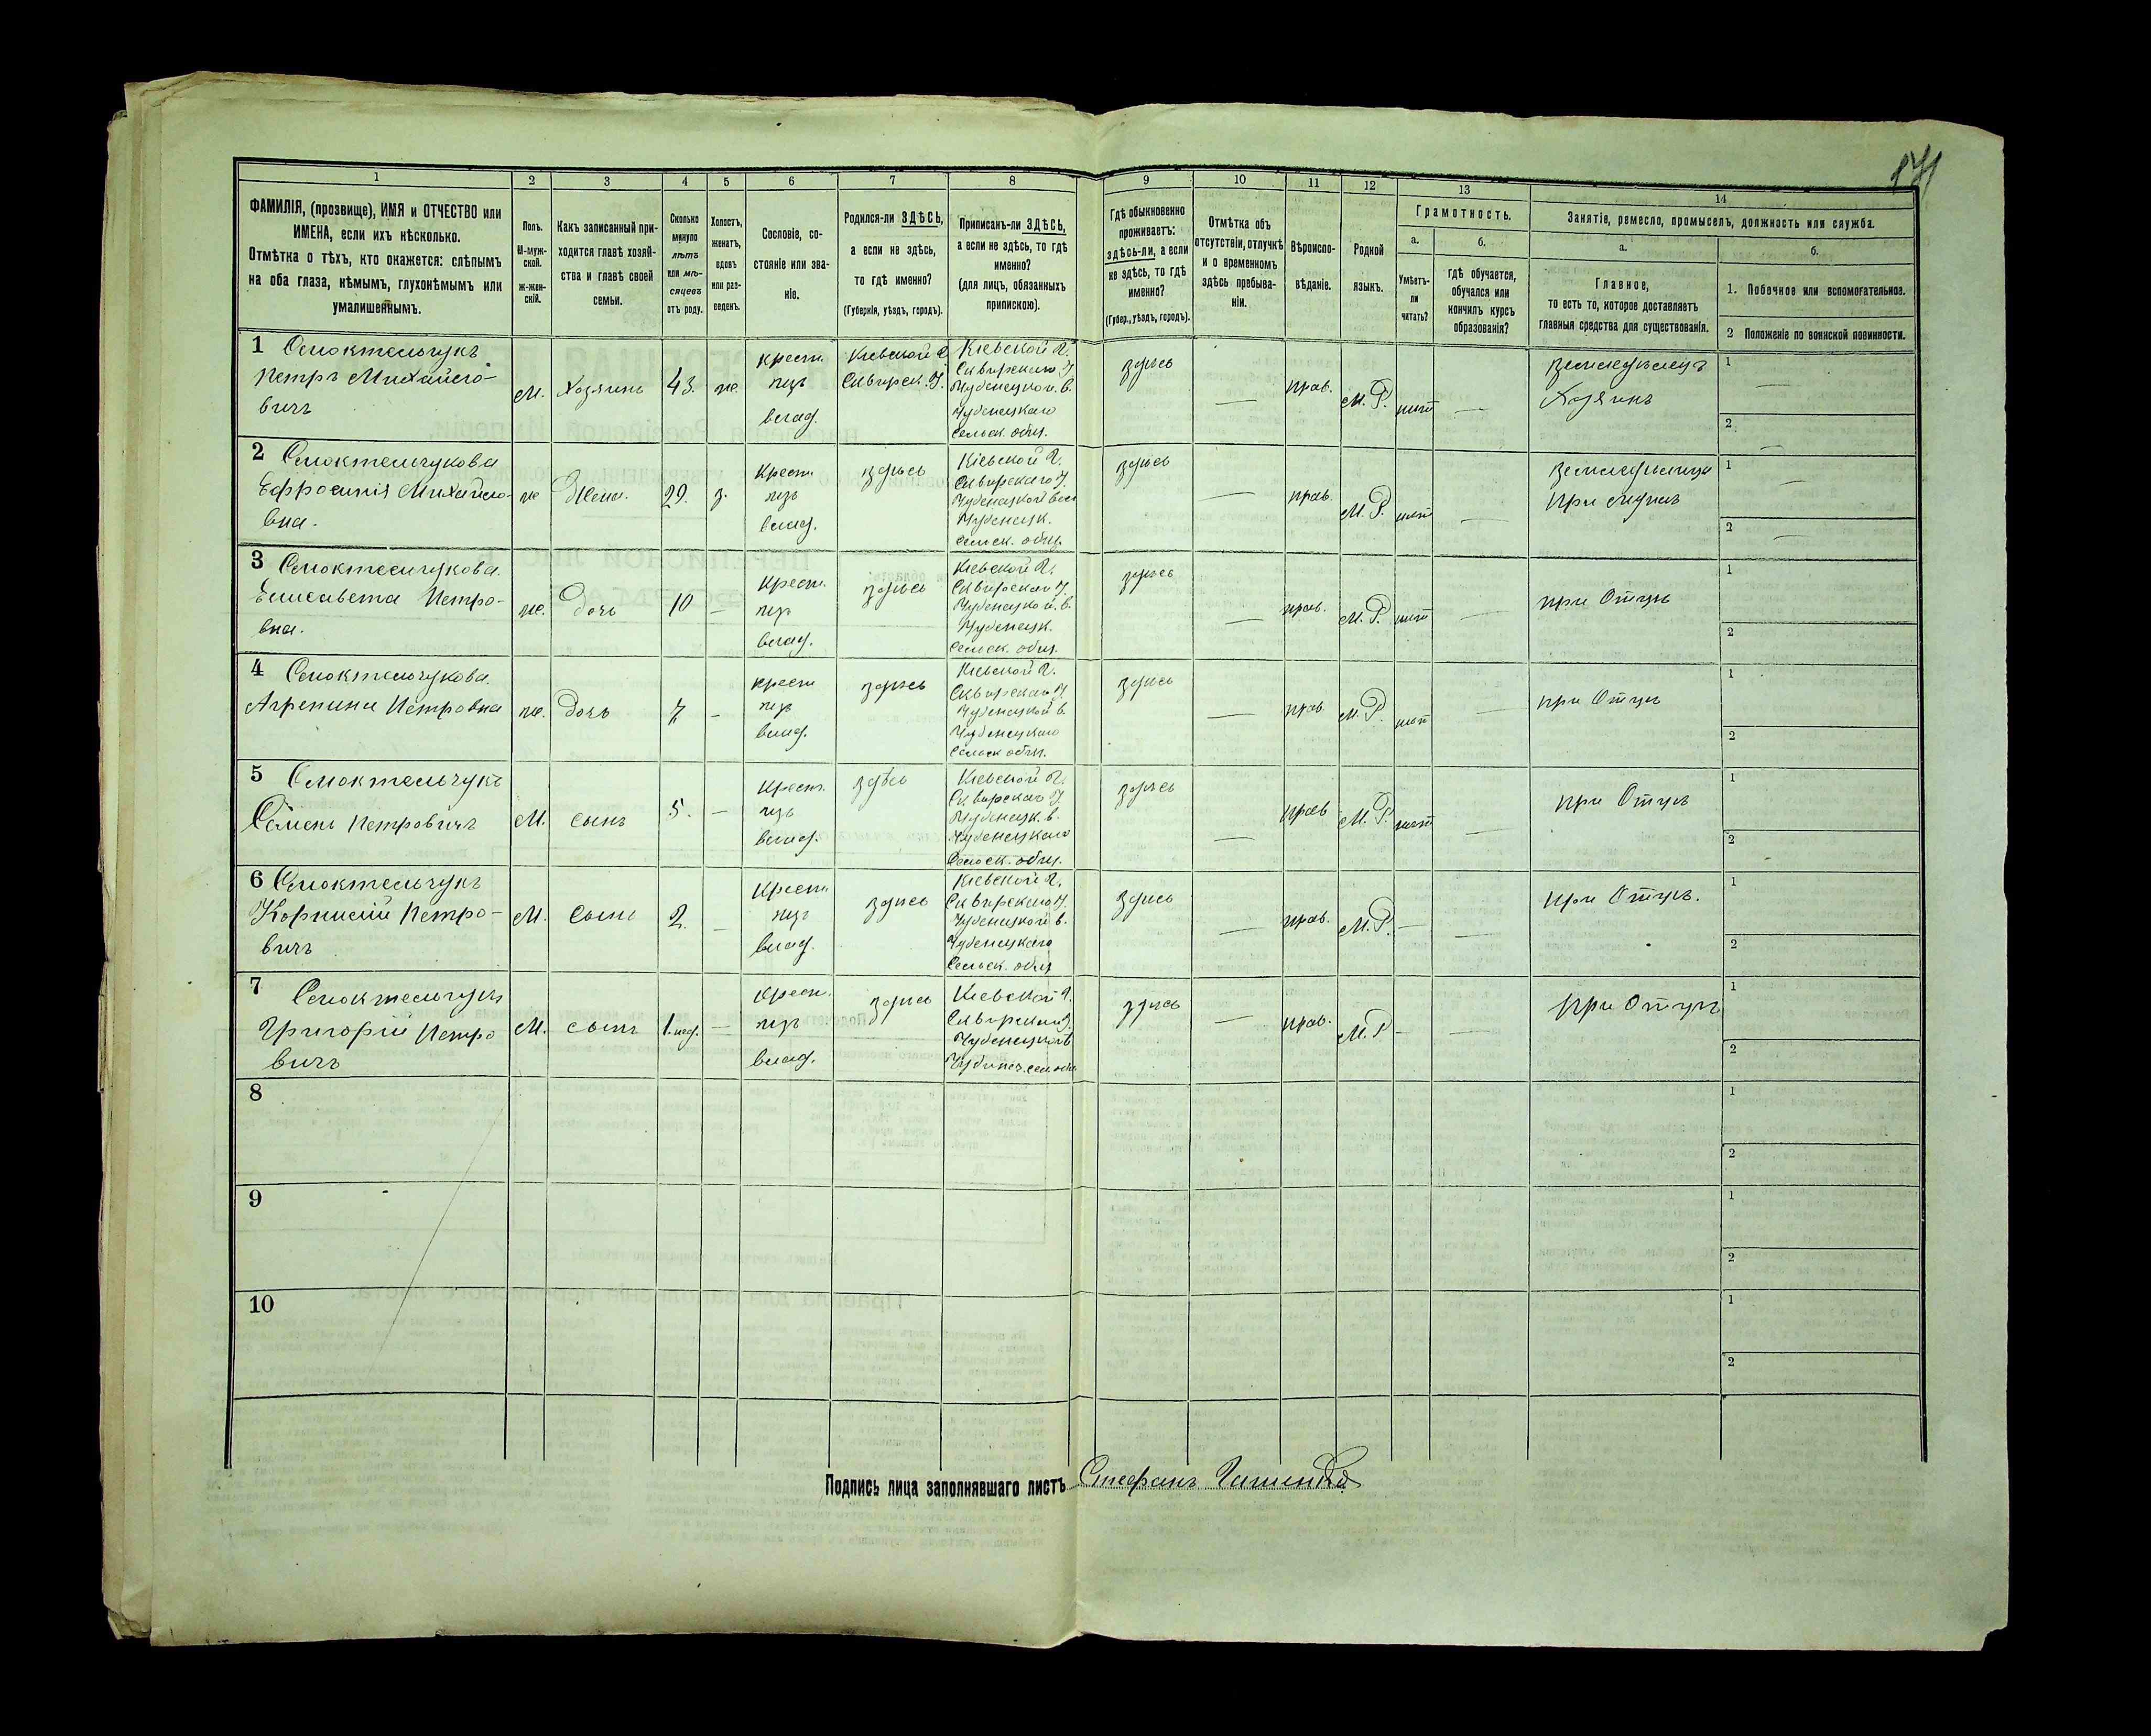 171
1 2 3 4 5 6 7 8 9 10 11 12 13 14
ФАМИЛІЯ, (прозвище), ИМЯ и ОТЧЕСТВО или
ИМЕНА, если ихъ нѣсколько.
Отмѣтка о тѣхъ, кто окажется: слѣпымъ
на оба глаза, нѣмымъ, глухонѣмымъ или
умалишеннымъ.
Полъ.
М-муж-
ской.
ж-жен-
скій.
Какъ записанный при-
ходится главѣ хозяй-
ства и главѣ своей
семьи.
Сколько
минуло
лѣтъ
или мѣ-
сяцевъ
отъ роду.
Холостъ,
женатъ,
вдовъ
или раз-
веденъ.
Сословіе, со-
стояніе или зва-
ніе.
Родился-ли ЗДѢСЬ,
а если не здѣсь,
то гдѣ именно?
(Губернія, уѣздъ, городъ).
Приписанъ-ли ЗДѢСЬ,
а если не здѣсь, то гдѣ
именно?
(для лицъ, обязанныхъ
припискою).
Гдѣ обыкновенно
проживаетъ:
здѣсь-ли, а если
не здѣсь, то гдѣ
именно?
(Губер., уѣздъ, городъ).
Отмѣтка объ
отсутствіи, отлучкѣ
и о временномъ
здѣсь пребыва-
ніи.
Вѣроиспо-
вѣданіе.
Родной
языкъ.
Грамотность.
а.
Умѣетъ-
ли
читать?
б.
гдѣ обучается,
обучался или
кончилъ курсъ
образованія?
Занятіе, ремесло, промыселъ, должность или служба.
а.
Главное,
то есть то, которое доставляетъ
главныя средства для существованія.
б.
1. Побочное или вспомогательное.
2 Положеніе по воинской повинности.
1 Смоктельчукъ
Петръ Михайло-
вичъ
М. Хозяинъ 43. ж.
крест.
изъ
влад.
Кіевской Г.
Сквирск. У.
Кіевской Г.
Сквирскаго У.
Чубенецкой. в.
Чубенецкаго
Сельск. общ.
здѣсь — прав. М. Р. нѣт —
Земледѣлецъ
Хозяинъ
1 —
2 —
2 Смоктельчукова
Ефросинія Михайло-
вна.
ж Жена. 29. з.
Крест
изъ
влад.
здѣсь
Кіевской Г.
Сквирскаго У.
Чубенецкой вол
Чубенецк.
Сельск. общ.
здѣсь — прав. М. Р. нѣт —
при мужѣ
1 —
2 —
3 Смоктельчукова.
Елисавета Петро-
вна.
ж. дочь 10 —
Крест.
изъ
влад.
здѣсь
Кіевской Г.
Сквирскаго У.
Чубенецкой. в.
Чубенецк.
Сельск. общ.
здѣсь — прав. М. Р. нѣт —
при Отцѣ
1
2
4 Смоктельчукова.
Агрепина Петровна
ж. дочь 7 —
крест
изъ
влад.
здѣсь
Кіевской Г.
Сквирскаго У.
Чубенецкой в.
Чубенецкаго
Сельск общ.
здѣсь — прав. М. Р. нѣт —
при Отцѣ
1
2
5 Смоктельчукъ
Семенъ Петровичъ
М. сынъ 5. —
Крест.
изъ
влад.
здѣсь
Кіевской Г.
Сквирскаго У.
Чубенецк. в.
Чубенецкаго
Сельск. общ.
здѣсь — прав М. Р. нѣт —
при Отцѣ
1
2
6 Смоктельчукъ
Корнилій Петро-
вичъ
М. Сынъ 2. —
Крест.
изъ
влад.
здѣсь
Кіевской Г.
Сквирскаго У.
Чубенецкой в.
Чубенецкаго
Сельск. общ
здѣсь — прав. М. Р. — —
при Отцѣ.
1
2
7 Смоктельчукъ
Григорій Петро
вичъ
М. сынъ 1. нед. —
Крест.
изъ
влад.
здѣсь
Кіевской Г.
Сквирскаго У.
Чубенецкой в
здѣсь — прав. М. Р — —
при Отцѣ
1
2
8
1
2
9
1
2
10
1
2
Подпись лица заполнявшаго листъ Стефанъ